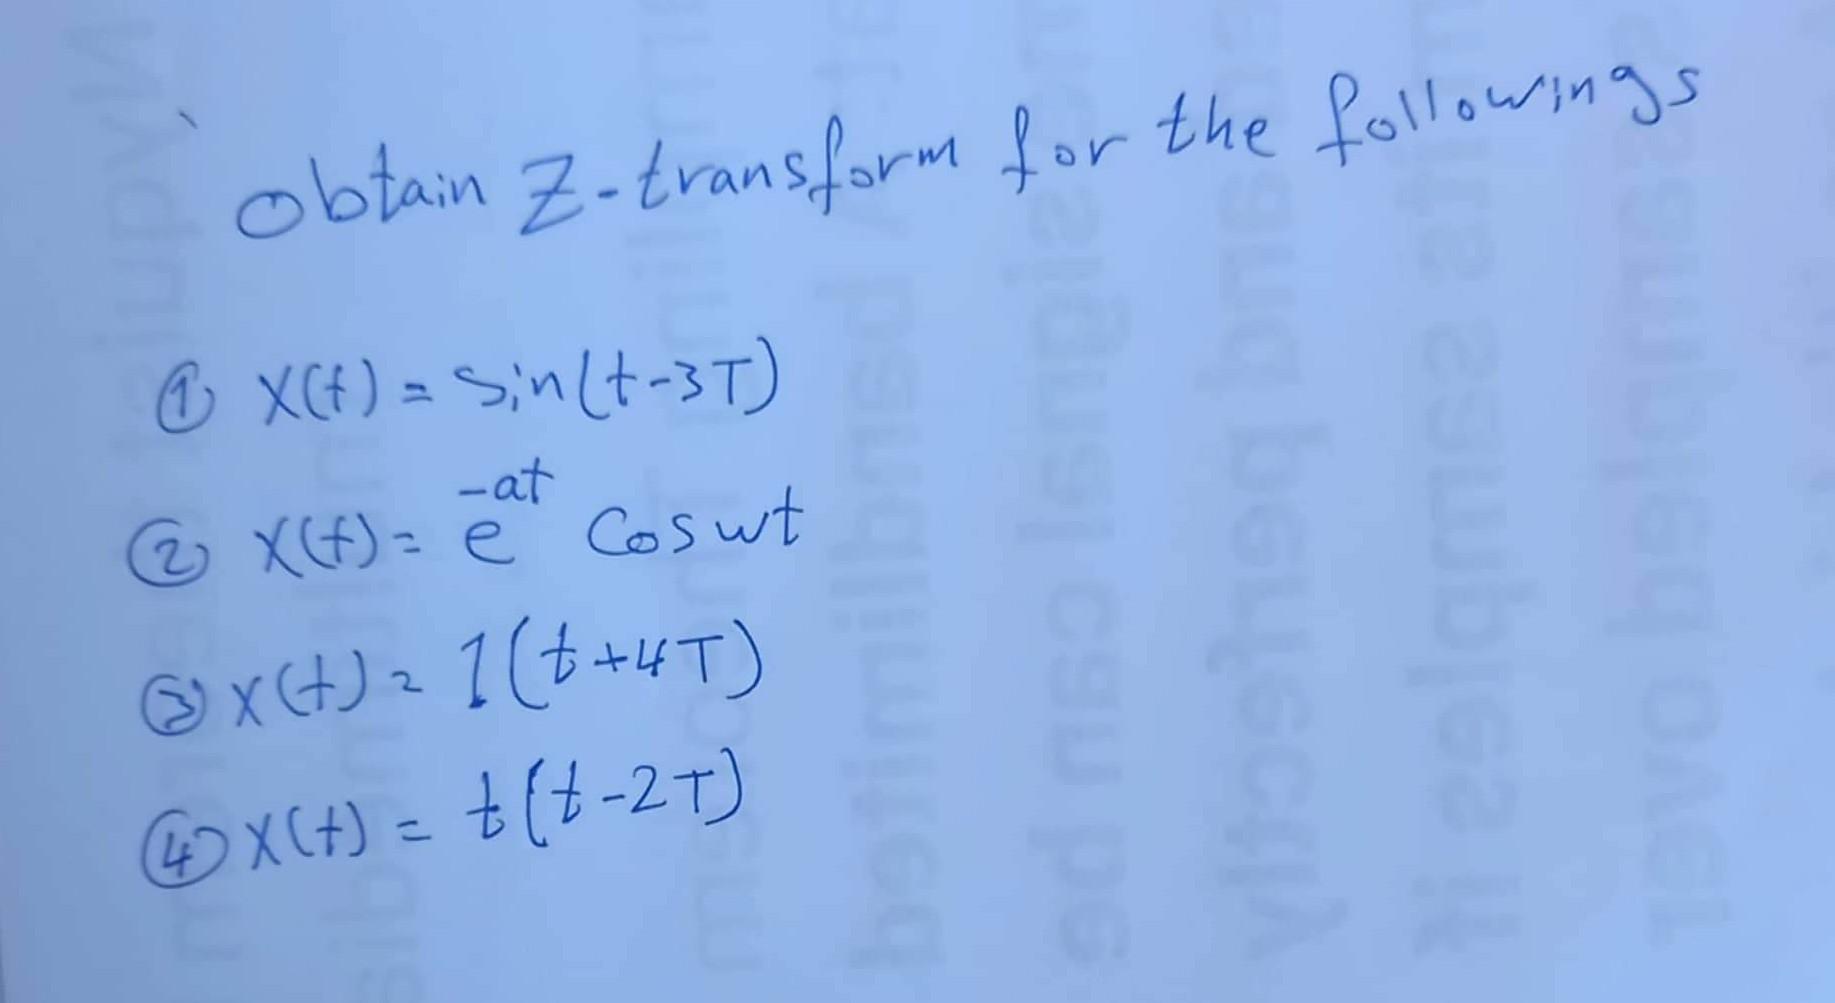 obtain Z-transform for the followings
① x(t) = sin(t-3T)
② x(t) = e^{-at} Cos wt
③ x(t) = 1(t+4T)
④ x(t) = t(t-2T)